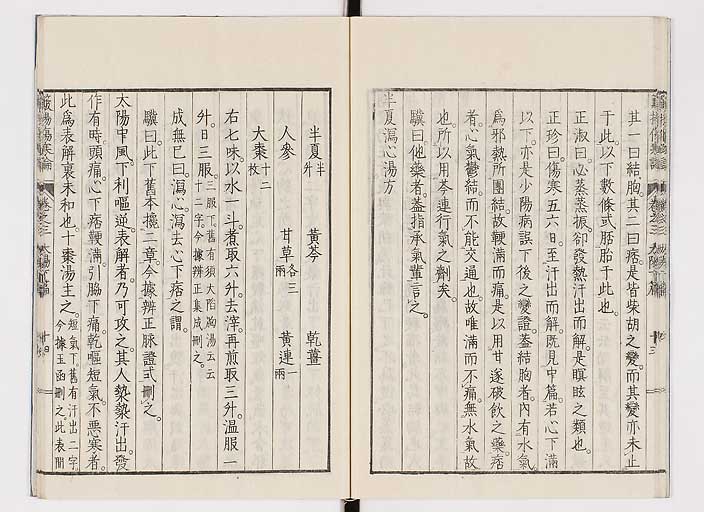 其一曰結胸其二曰痞是皆柴胡之變而其變亦未止
于此以下數條或胠胎于此也
正淑曰必蒸蒸振卻發熱汗出而解是瞑眩之類也
正珍曰傷寒五六日至汗出而解既見中篇若心下滿
以下亦是少陽病誤下後之變證蓋結胸者內有水氣
爲邪熱所團結故鞕滿而痛是以用甘遂破飲之藥痞
者心氣鬱結而不能交通也故唯滿而不痛無水氣故
也所以用芩連行氣之劑矣
驥曰他藥者蓋指承氣輩言之
半夏瀉心湯方
半夏半升 黃芩 乾薑
人參 甘草各三兩 黃連一兩
大棗十二枚
右七味以水一斗煮取六升去滓再煎取三升溫服一
升日三服三服下舊有須大陷胸湯云云十二字今據辨正集成刪之
成無已曰瀉心瀉去心下痞之謂
驥曰此下舊本攙二章今據辨正脉證式刪之
太陽中風下利嘔逆表解者乃可攻之其人漐漐汗出發
作有時頭痛心下痞鞕滿引脇下痛乾嘔短氣不惡寒者
此爲表解裏未和也十棗湯主之短氣下舊有汗出二字今據玉函刪之此表間
卷之三 太陽下篇